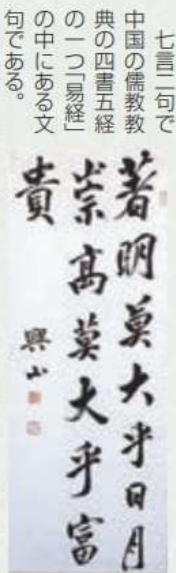 七言二句で
中国の儒教教
典の四書五経
の一つ「易経」
の中にある文
句である。
著明莫大乎日月
崇高莫大乎富
貴
興山